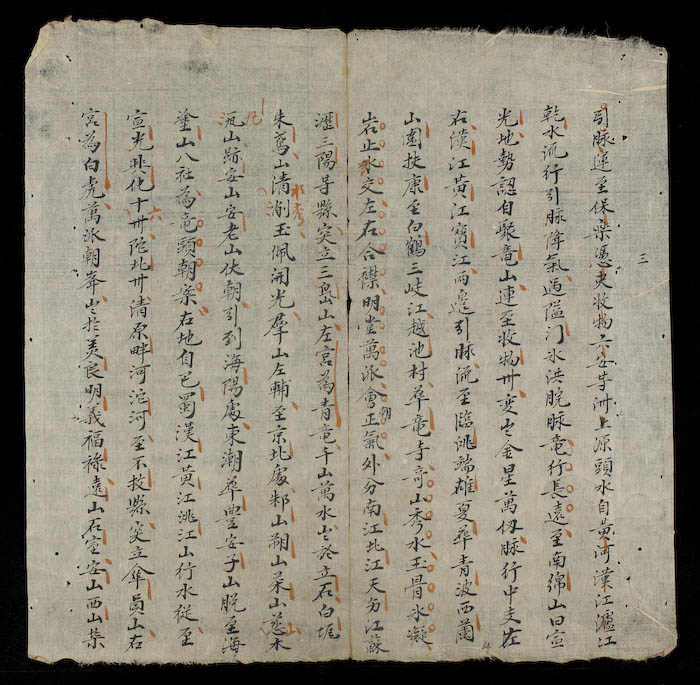 三
引脉運至保樂憑夫收物六安等州上源頭水自黃河漢江瀘江
乾水流行引脉降氣過隘门水洪脫脉竜行長遠至南綿山曰宣
光地勢認自聚竜山連至收物州变出金星萬仭脉行中支左
右漢江黃江寶江两邊引脉流至臨洮端雄夏華青波西蘭
山圍扶康至白鶴三岐江越池村華竜寺奇山秀水玉骨氷凝
岩止水交左右合襟明堂萬派會朝正氣外分南江北江天江蘇
瀝三陽等縣突立三島山左宮為青竜千山萬水出於立石白坭
朱鳶山清玉佩開光羣山左輔至京北處山朔山菜山慈木
山跡安山安老山伏朝引到海陽處東潮華豊安子山脱至海
塗山八社為竜頭朝案右地自巴蜀漢江黃江洮江山行水從至
宣光興化十六州陀北州清原畔河沱河至不拔縣突立傘員山右
宮為白虎萬派朝峯出於美良明義福祿遠山石室安山西山柴